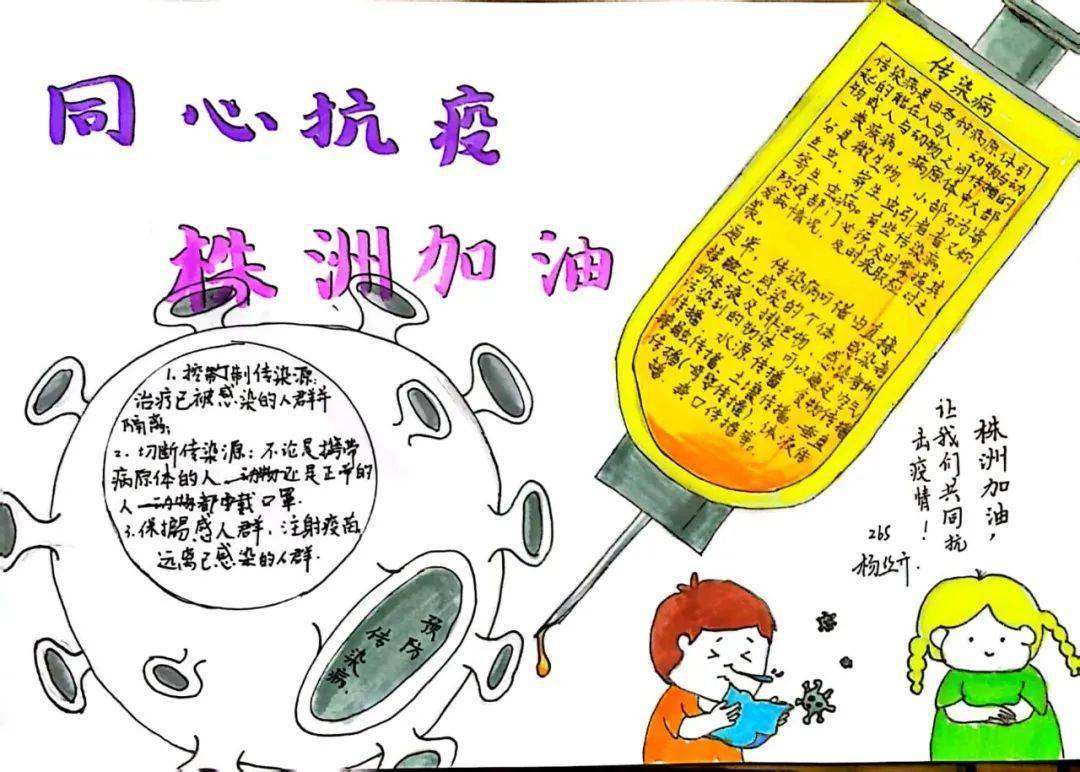 同心抗疫
株洲加油
传染病
传染病是由各种病原体引
起的能在人与人、动物与动
物或人与动物之间传播的
一类疾病。病原体中大部
分是微生物，小部分为寄
生虫，寄生虫引起者又称
寄生虫病。有些传染病，
防疫部门必须及时掌握其
发病情况，及时采取应对之
策。
通常，传染病可藉由直接
接触已感染的个体、感染者
的体液及排泄物、感染者所
污染到的物体，可以通过空气
传播、水源传播、食物传播
接触传播、土壤传播、垂直
传播（母婴传播）、体液传
播、粪口传播等。
1. 控制制传染源：
治疗已被感染的人群并
隔离；
2. 切断传染源：不论是携带
病原体的人 动物还是正常的
人 动物都戴口罩
3. 保护易感人群：注射疫苗
远离已感染的人群.
预防
传染病.
株洲加油，
让我们共同抗
击疫情！
265
杨